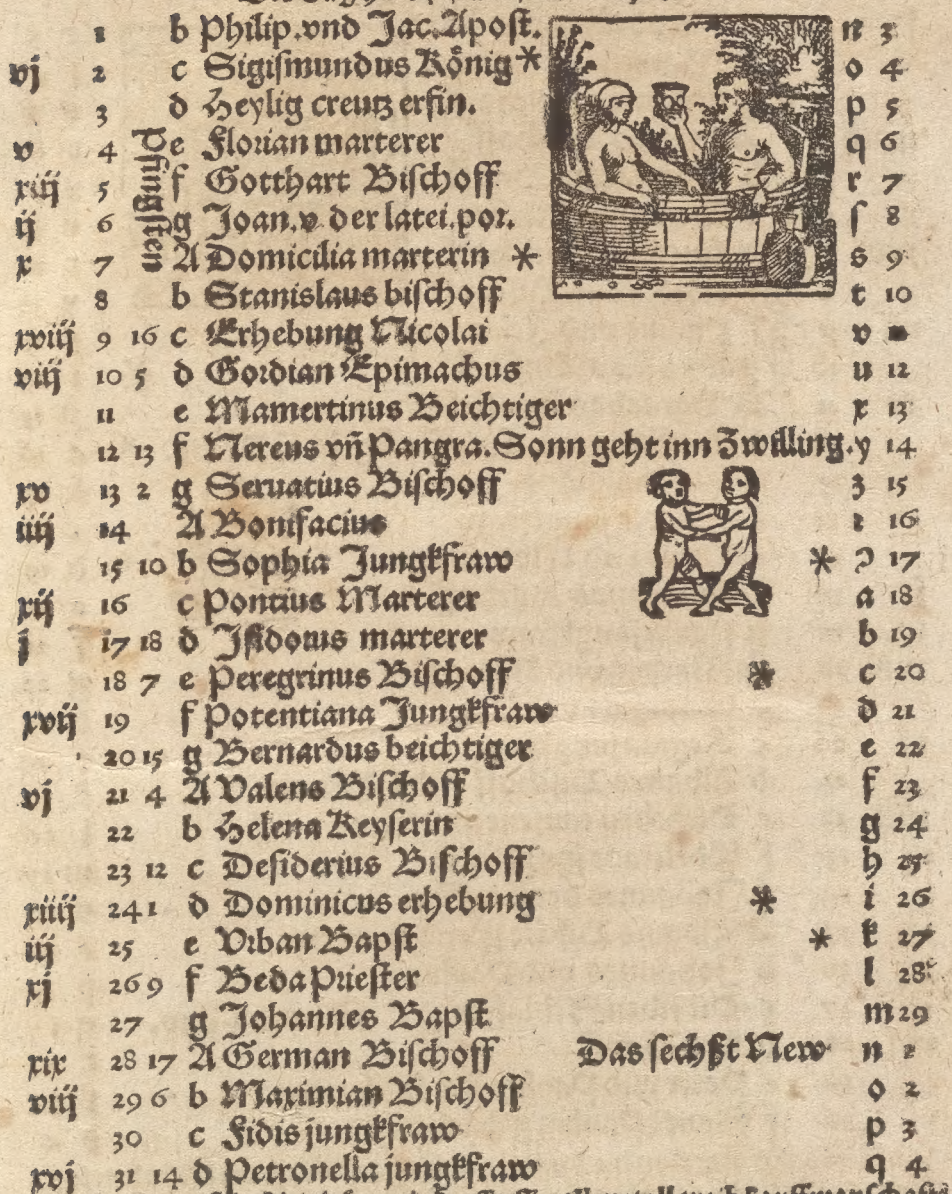 1 b Philip.vnd Jac.Apost. n 3
vj 2 c Sigismundus König * o 4
3 d Heylig creutz erfin. p 5
v 4 e Florian marterer q 6
xiij 5 f Gotthart Bischoff r 7
ij 6 g Joan.v der latei.por. ſ 8
x 7 A Domicilia marterin * s 9
Pfingsten
8 b Stanislaus bischoff t 10
xviij 9 16 c Erhebung Nicolai v
viij 10 5 d Gordian Epimachus u 12
11 e Mamertinus Beichtiger x 13
12 13 f Nereus vñ Pangra. Sonn geht inn Zwilling. y 14
xv 13 2 g Seruatius Bischoff z 15
iiij 14 A Bonifacius ꝛ 16
15 10 b Sophia Jungkfraw * ɔ 17
xij 16 c Pontius Marterer a 18
j 17 18 d Isidorus marterer b 19
18 7 e Peregrinus Bischoff * c 20
xvij 19 f Potentiana Jungkfraw d 21
20 15 g Bernardus beichtiger e 22
vj 21 4 A Valens Bischoff f 23
22 b Helena Keyserin g 24
23 12 c Desiderius Bischoff h 25
xiiij 24 1 d Dominicus erhebung * i 26
iij 25 e Vrban Bapst * k 27
xj 26 9 f Beda Priester l 28
27 g Johannes Bapst m 29
xix 28 17 A German Bischoff Das sechßt New n 1
viij 29 6 b Maximian Bischoff o 2
30 c Fidis jungkfraw p 3
xvj 31 14 d Petronella jungkfraw q 4